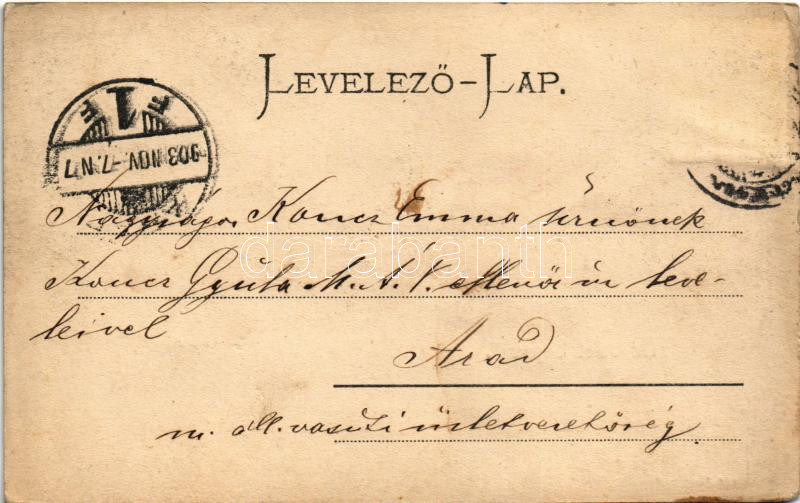 LEVELEZŐ-LAP.
F 1 F
903 NOV. -7. N 7
Nagyságos Koncz Emma úrnőnek
Koncz Gyula M. Á. V. Mérnök úr leve-
leivel
Arad
m. áll. vasúti üzletvezetőség
darabanth